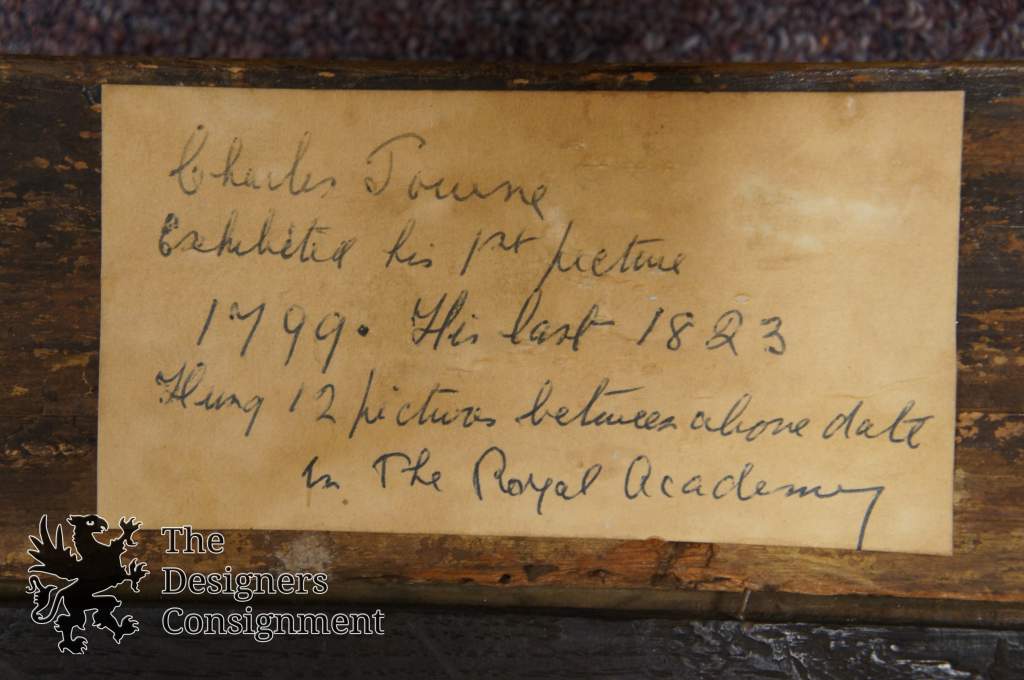 Charles Towne
Exhibited his 1st picture
1799. His last 1823
Hung 12 pictures between above date
in The Royal Academy
The
Designers
Consignment